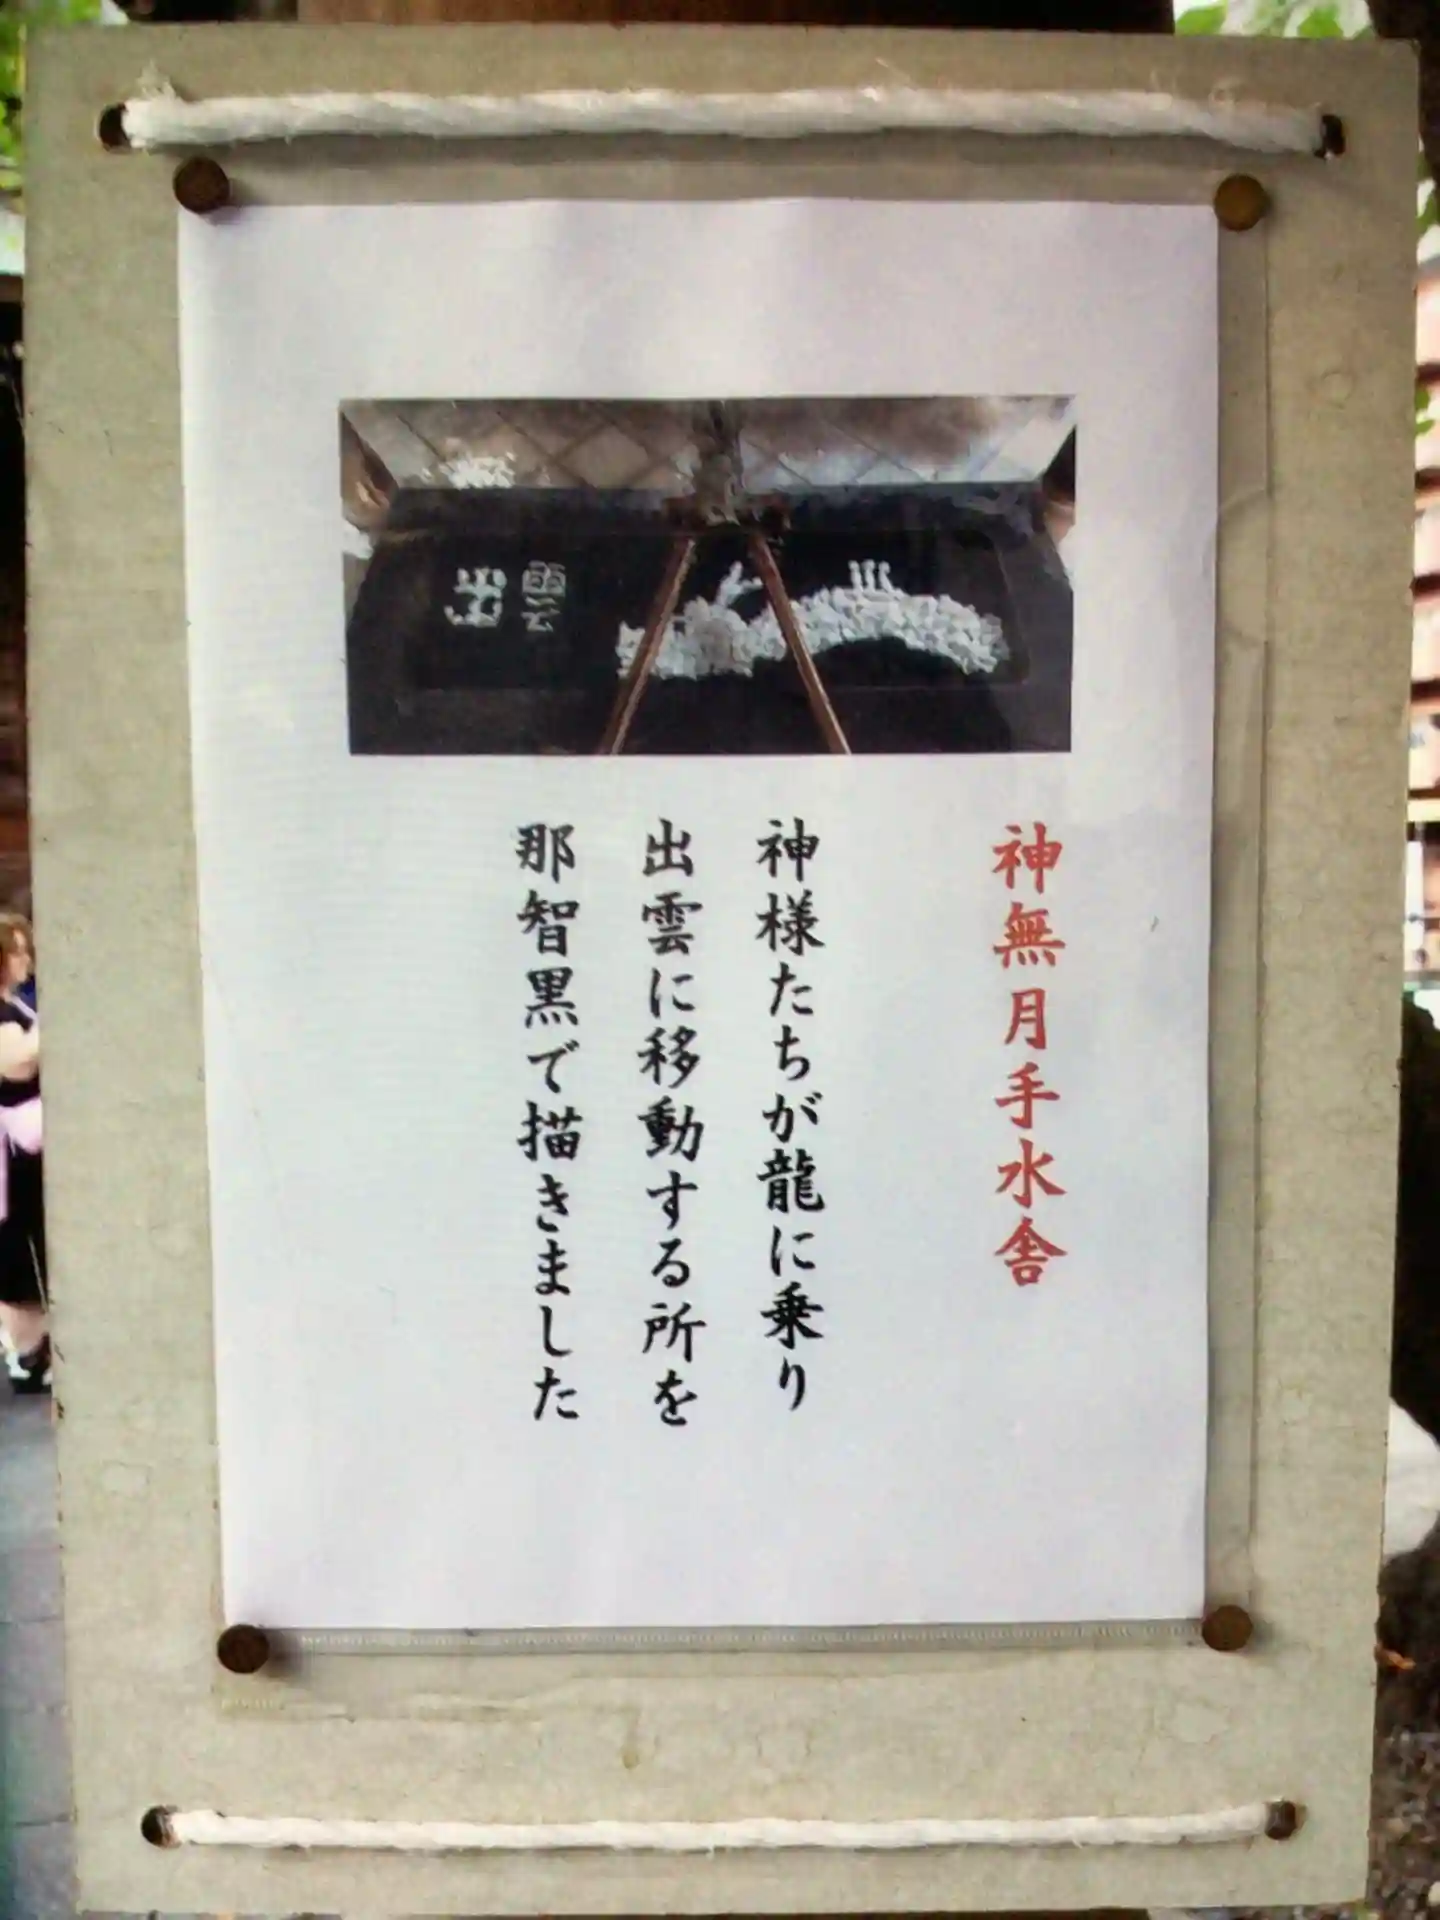 出雲
神無月手水舎
神様たちが龍に乗り
出雲に移動する所を
那智黒で描きました